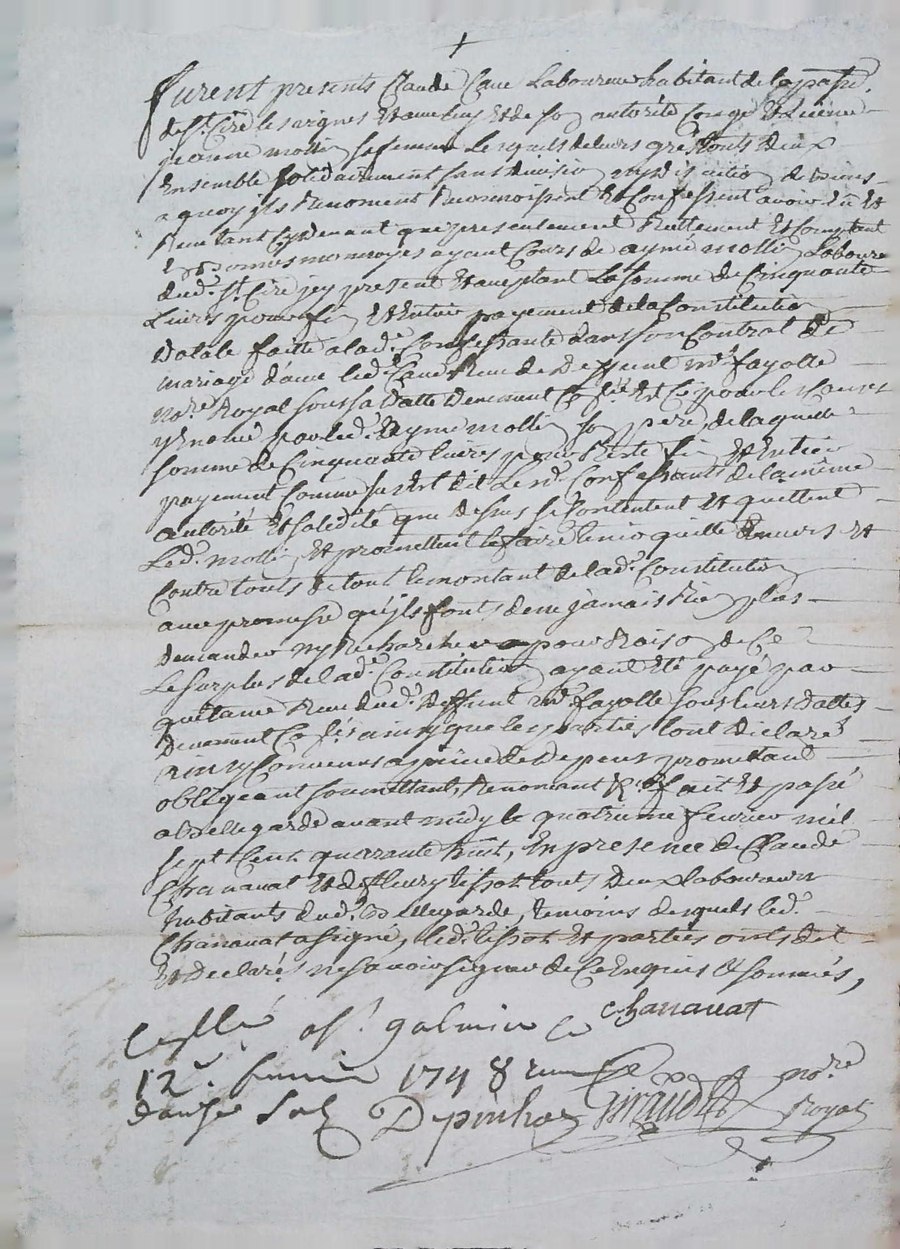 +
furent presents Claude Cave Laboureur habitant de la parr.
de St. Ciré les vignes Et avec luy Et de son autorité Congé Et Licence
jeanne mollin sa femme Lesquels de leurs grés touts deux
Ensemble solidairement sans division ny discution de biens
a quoy ils Renoncent Reconnoissent Et Confessent avoir Eu Et
Reçu tant Cydevant que presentement Reellement Et Comptant
En bonnes monnoyes ayant Cours de aymé mollin Laboureur
dud. St. Ciré jcy present Et aceptant La somme de Cinquante
Livres pour fin Et Entier payement de la Constitution
dotale faitte a lad. Confessante dans son Contrat de
mariage d'avec led. Cave Reçu de Deffunt me. fayolle
nore. Royal sous sa datte Deuement Collé Et Ce pour les Causes
y Enoncé par led. Eymé mollin son pere, de laquelle
somme de Cinquante livres pour Reste fin Et Entier
payement Comme sus Est dit Les d. Confessants de la même
autorité Et solidité que dessus se Contentent Et quittent
Led. mollin Et promettent le faire tenir quitte Envers Et
Contre touts de tout le montant de lad. Constitution
avec promesse qu'ils fonts de ne jamais Rien plus
demander ny Rechercher pour Raison de Ce
Le surplus de lad. Constitution ayant Eté payé par
quittance Reçue dud. Deffunt me. fayolle sous leurs dattes
Deuement Collés ainsy que les parties l'ont declaré
ainsy Convenus a peine de Depens promettant
obligeant soumettant, Renonçant &c. fait Et passé
a bellegarde avant midy le quatrieme fevrier mil
sept Cent quarante huit, En presence de Claude
Chanavat Et de fleury tissot touts Deux Laboureurs
habitants dud. bellegarde, temoins desquels led.
Chanavat a signé, led. tissot Et parties onts dit
Et Declarés ne savoir signer de Ce Enquis & sommés,
Chanavat
St. galmier Ce
12e. fevrier 1748 Reçu
douze sols Depinhac Giraud nore
Royal